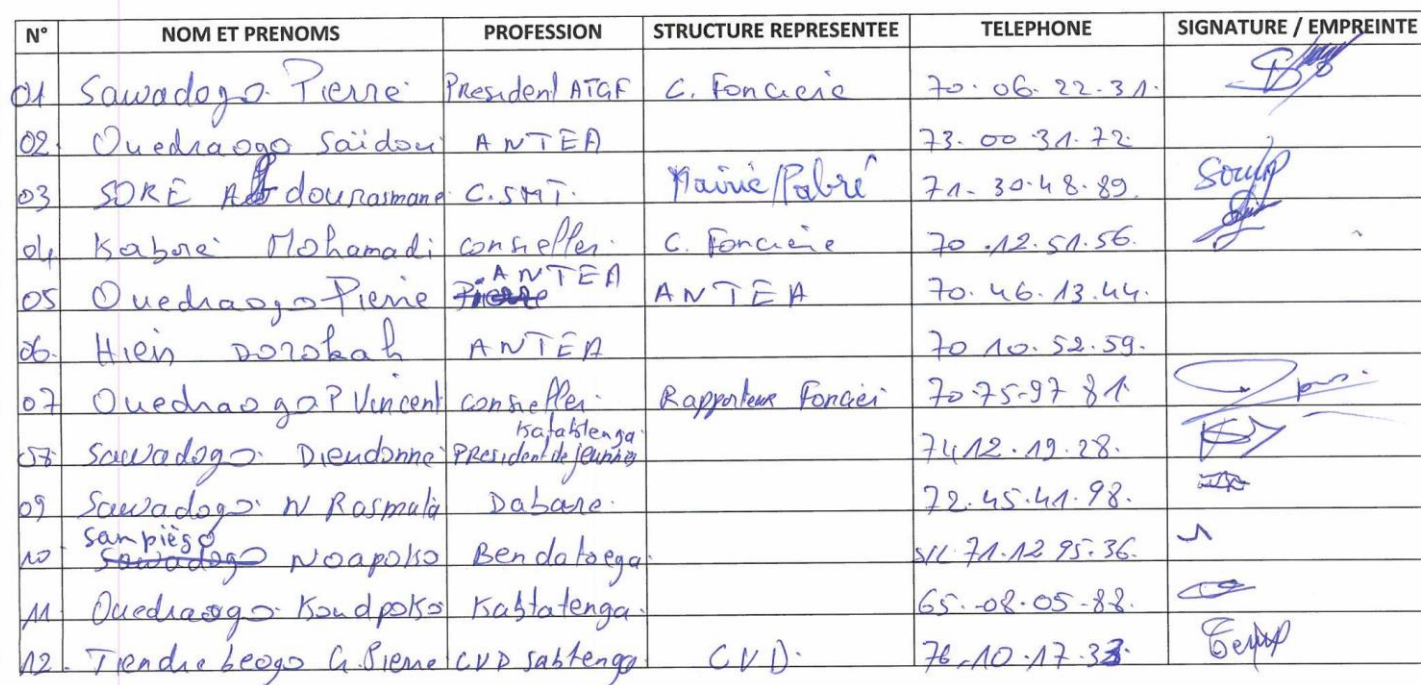 N° NOM ET PRENOMS PROFESSION STRUCTURE REPRESENTEE TELEPHONE SIGNATURE / EMPREINTE
01 Sawadogo Pierre President ATGF C. Foncière 70.06.22.31.
02 Ouedraogo Saïdou ANTEA 73.00.31.72
03 SORE Abdourasmane C.SMT. Mairie/Pabré 71.30.48.89.
04 Kaboré Mohamadi conseiller. C. Foncière 70.12.51.56.
05 Ouedraogo Pierre ANTEA ANTEA 70.46.13.44.
06. Hien DOROKAH ANTEA 70 10.52.59.
07 Ouedraogo P Vincent conseiller. Rapporteur Foncier 70.75-97 81.
Sawadogo Dieudonne President de jeunes 74 12.19.28.
09 Sawadogo N Rasmata Dabare. 72.45.41.98.
10 Sampiègo Noapoko Bendatoega 71.12 95.36.
11 Ouedraogo Koudpoko Kabtatenga. 65.08.05-88.
12 - Tiendrebeogo G. Pierre CVD Sabtenga CVD. 76.10.17.33